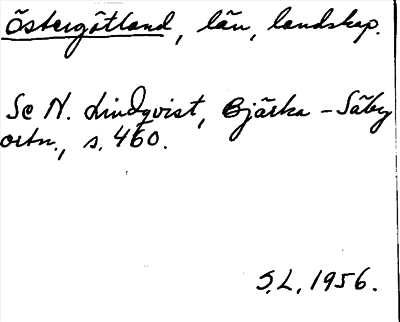 Östergötland, län, landskap.
Se N. Lindqvist, Bjärka-Säby
ortn., s. 460.
S.L. 1956.